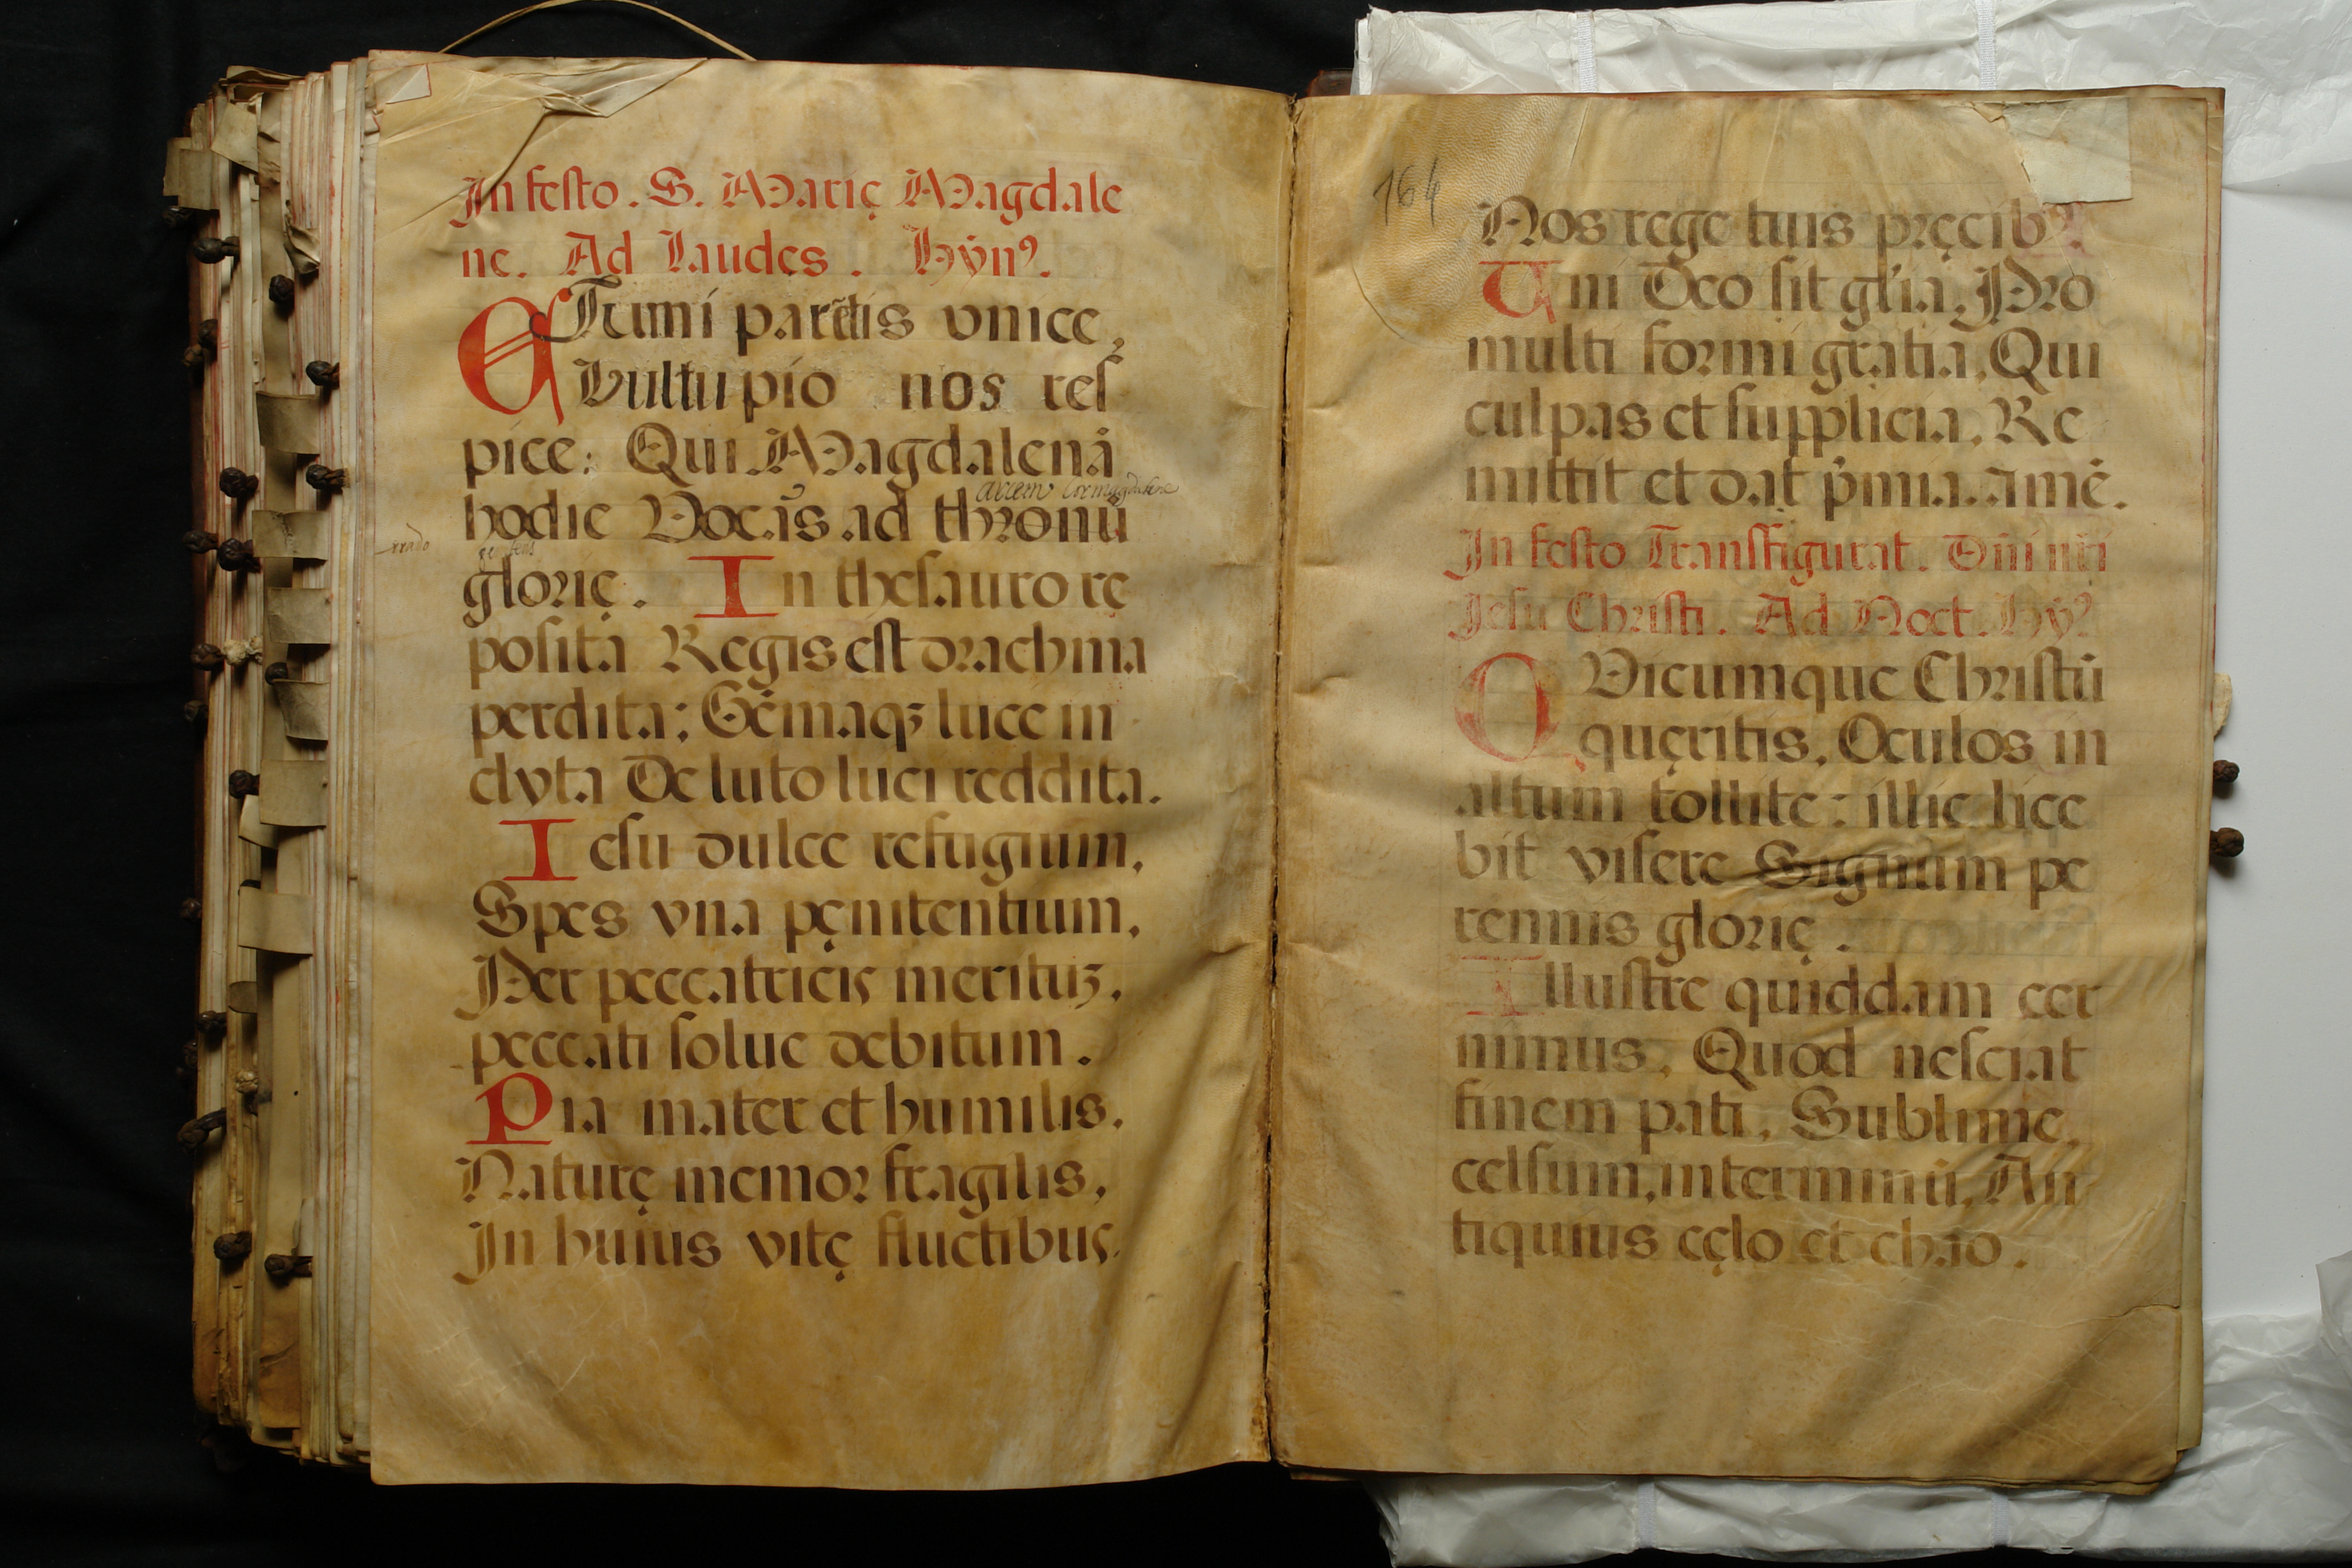 In festo. S. Marię Magdale
ne. Ad Laudes. Hÿnꝰ.
ÆTerni parẽtis vnice,
Vultu pio nos res
pice: Qui Magdalenã
hodie Vocãs ad thronũ
glorię. In thesauro rę
posita Regis est drachma
perdita; Gẽmaqꝫ luce in
clyta De luto luci reddita.
Iesu dulce refugium,
Spes vna pęnitentium,
Per peccatricis meritũ,
peccati solue debitum.
Pia mater et humilis,
Naturę memor fragilis,
In huius vitę fluctibus
164
Nos rege tuis pręcibꝰ.
Uni Deo sit glia, Pro
multi formi gratia, Qui
culpas et supplicia, Re
mittit et dat p̃mia. Amẽ.
In festo Transfigurat. Dñi nri
Jesu Christi. Ad Noct. Hÿꝰ
QVicumque Christũ
quęritis, Oculos in
altum tollite: illic lice
bit visere Signum pe
rennis glorię.
Illustre quiddam cer
nimus, Quod nesciat
finem pati, Sublime,
celsum, interminũ, An
tiquius cęlo et chao.